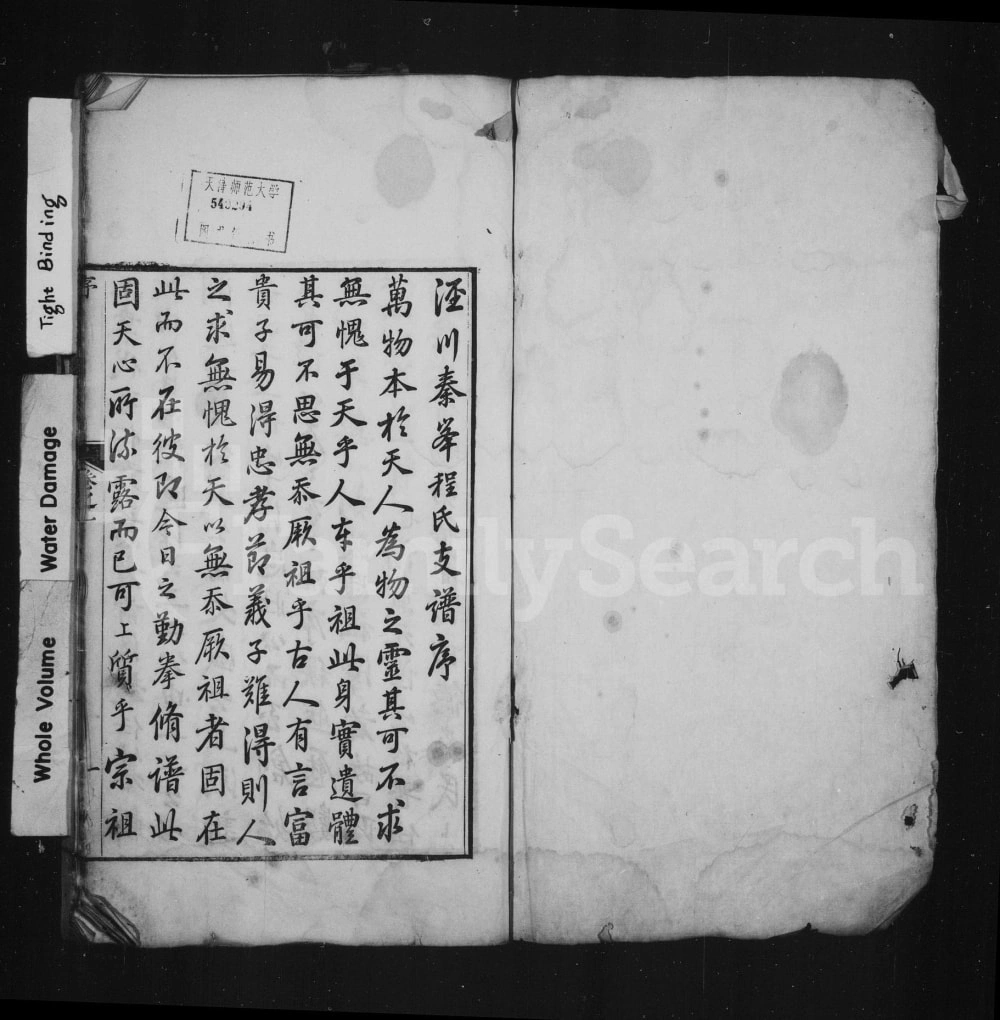 涇川秦峯程氏支譜序
萬物本於天人為物之靈其可不求
無愧于天乎人本乎祖此身實遺體
其可不思無忝厥祖乎古人有言富
貴子易得忠孝節義子難得則人
之求無愧於天以無忝厥祖者固在
此而不在彼即今日之勤拳脩譜此
固天心所流露而已可上質乎宗祖
序
卷之一
一
天津师范大学
图书
Tight Binding
Water Damage
Whole Volume
FamilySearch